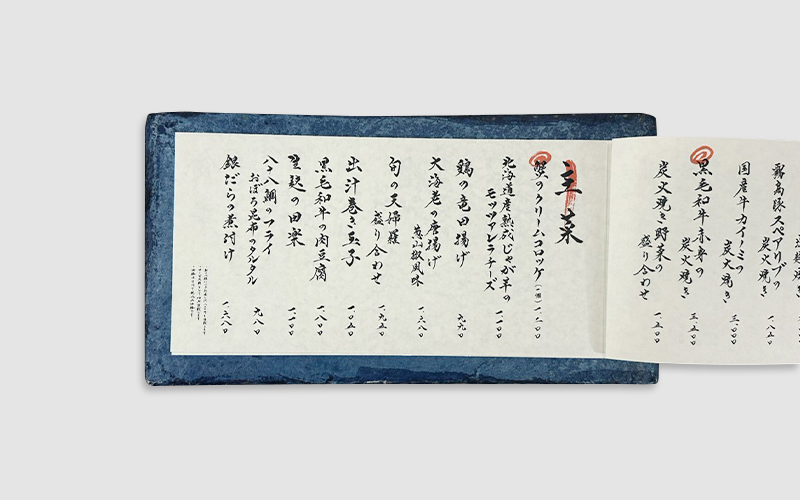 霧島豚スペアリブの
炭火焼き
国産牛カイノミの
炭火焼き 三、〇〇〇
黒毛和牛赤身の
炭火焼き 三、五〇〇
炭火焼き野菜の
盛り合わせ 一、五〇〇
主菜
蟹のクリームコロッケ(一個) 一、二〇〇
北海道産熟成じゃが芋の
モッツァレラチーズ 一、一〇〇
鶏の竜田揚げ 九九〇
大海老の唐揚げ
葱山椒風味 一、六八〇
旬の天婦羅
盛り合わせ 一、九五〇
出汁巻き玉子 一、〇五〇
黒毛和牛の肉豆腐 一、八〇〇
生麩の田楽 一、一〇〇
八十八鯛のフライ
おぼろ昆布のタルタル 九八〇
銀だらの煮付け 一、六八〇